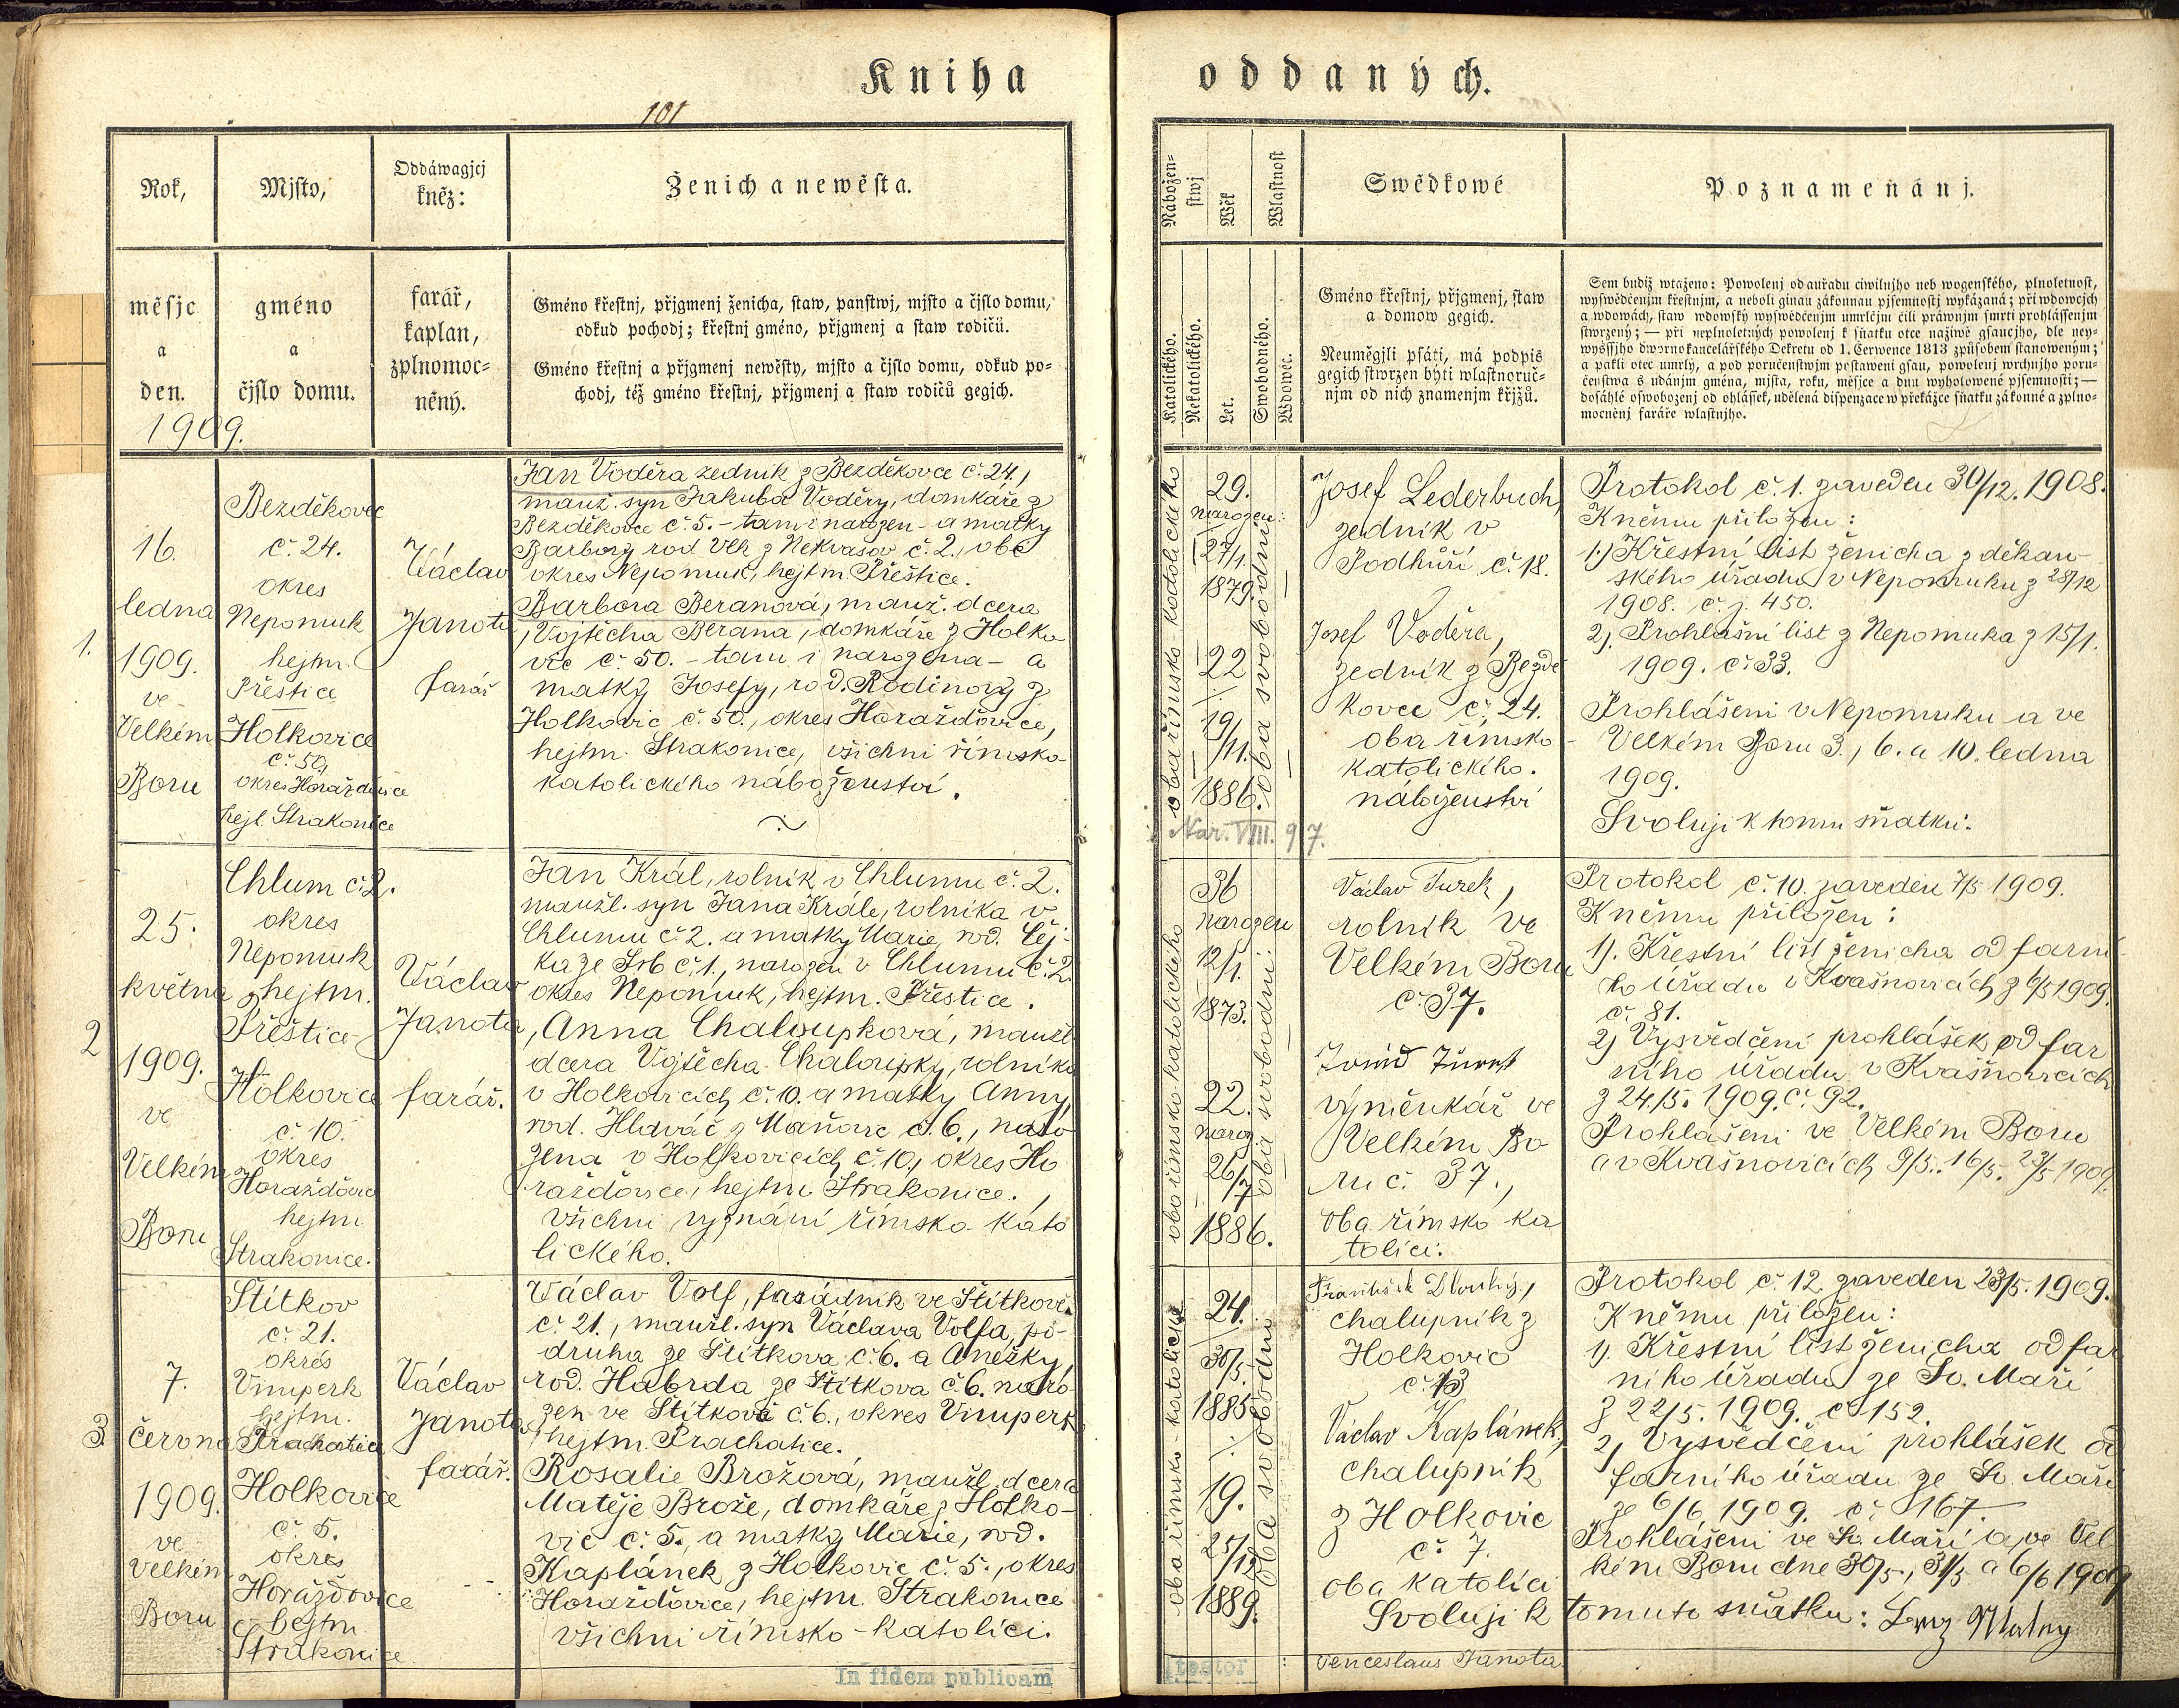 Kniha
oddaných.
101
Rok,
měsjc
a
den.
1909.
Mjsto,
gméno
a
čjslo domu.
Oddáwagjcj
kněz:
farář,
kaplan,
zplnomoc=
něný.
Ženich a newěsta.
Gméno křestnj, přjgmenj ženicha, staw, panstwj, mjsto a čjslo domu,
odkud pochodj; křestnj gméno, přjgmenj a staw rodičů.
Gméno křestnj a přjgmenj newěsty, mjsto a čjslo domu, odkud po=
chodj, též gméno křestnj, přjgmenj a staw rodičů gegich.
Nábožen=
stwj
Katolického.
Nekatolického.
Wěk
Let.
Wlastnost
Swobodného.
Wdowec.
Swědkowé
Gméno křestnj, přjgmenj, staw
a domow gegich.
Neuměgjli psáti, má podpis
gegich stwrzen býti wlastnoruč=
njm od nich znamenjm křjžů.
Poznamenánj.
Sem budiž wtaženo: Powolenj od auřadu ciwilnjho neb wogenského, plnoletnost,
wyswědčenjm křestnjm, a neboli ginau zákonnau pjsemnostj wykázaná; při wdowcjch
a wdowách, staw wdowský wyswědčenjm umrlčjm čili práwnjm smrti prohlášsenjm
stwrzený; — při neplnoletných powolenj k sňatku otce naživě gsaucjho, dle ney=
wyššjho dwornokancelářského Dekretu od 1. Čerwence 1813 způsobem stanoweným;
a pakli otec umrlý, a pod poručenstwjm postaweni gsau, powolenj wrchnjho poru=
čenstwa s udánjm gména, mjsta, roku, měsjce a dnu wyhotowené pjsemnosti; —
dosáhlé oswobozenj od ohlášsek, udělená dispenzace w překážce sňatku zákonné a zplno=
mocněnj faráře wlastnjho.
1.
16.
ledna
1909.
ve
Velkém
Boru
Bezděkovec
č. 24.
okres
Nepomuk
hejtm.
Přeštice
Holkovice
č. 50,
okres Horažďovice
hejt. Strakonice
Václav
Janota
farář
Jan Voděra zedník z Bezděkovce č. 24.,
manž. syn Jakuba Voděry, domkáře z
Bezděkovce č. 5. - tam i narozen - a matky
Barbory rod Vlk z Nekvasov č. 2., obé
okres Nepomuk, hejtm. Přeštice.
Barbora Beranová, manž. dcera
Vojtěcha Berana, domkáře z Holko
vic č. 50. - tam i narozena - a
matky Josefy, rod. Rodinový z
Holkovic č. 50., okres Horažďovice,
hejtm. Strakonice, všichni římsko-
katolického náboženství.
oba římsko-katolického
29.
narozen:
27/1.
1879.
22
19/11.
1886.
oba svobodni
Nar. VIII. 97.
Josef Lederbuch,
zedník v
Podhůří č. 18.
Josef Voděra,
zedník z Bezdě
kovce č. 24.
oba římsko-
katolického.
náboženství
Protokol č. 1. zaveden 30/12. 1908.
K němu přiložen:
1.) Křestní list ženicha z děkan-
ského úřadu v Nepomuku z 28/12
1908. č. j. 450.
2.) Prohlašní list z Nepomuka z 15/1.
1909. č. 33.
Prohlášeni v Nepomuku a ve
Velkém Boru 3., 6. a 10. ledna
1909.
Svoluji k tomu sňatku.
2
25.
května
1909.
ve
Velkém
Boru
Chlum č. 2.
okres
Nepomuk
hejtm.
Přeštice
Holkovice
č. 10.
okres
Horažďovice
hejtm
Strakonice.
Václav
Janota
farář.
Jan Král, rolník v Chlumu č. 2.
manžl. syn Jana Krále, rolníka v
Chlumu č. 2. a matky Marie, rod. Čej-
ka ze Srb č. 1., narozen v Chlumu č. 2.
okres Nepomuk, hejtm. Přeštice.
Anna Chaloupková, manžl
dcera Vojtěcha Chaloupky, rolníka
v Holkovicích č. 10. a matky Anny,
rod. Hlaváč z Maňovic č. 6., naro
zena v Holkovicích č. 10., okres Ho
ražďovice, hejtm Strakonice.,
všichni vyznání římsko-kato
lického.
oba římsko-katolického
36
narozen
12/1.
1873.
22.
naroz.
26/7
1886.
oba svobodni.
Václav Turek,
rolník ve
Velkém Boru
č. 37.
výměnkář ve
Velkém Bo-
ru č. 37.,
oba římsko ka
tolíci.
Protokol č. 10. zaveden 7/5 1909.
K němu přiložen:
1). Křestní list ženicha od farní-
ho úřadu v Kvašňovicích z 6/5 1909.
č. 81.
2) Vysvědčení prohlášek od far
ního úřadu v Kvašňovicích
z 24./5. 1909. č. 92.
Prohlášeni ve Velkém Boru
a v Kvašňovicích 9/5., 16/5. 23/5 1909.
3.
7.
června
1909.
ve
Velkém
Boru
Štítkov
č. 21.
okres
Vimperk
hejtm.
Prachatice
Holkovice
č. 5.
okres
Horažďovice
hejtm
Strakonice
Václav
Janota,
farář.
Václav Volf, fasádník ve Štítkově
č. 21., manžl. syn Václava Volfa, po-
druha ze Štítkova č. 6. a Anežky,
rod. Habrda ze Štítkova č. 6. naro-
zen ve Štítkově č. 6., okres Vimperk
hejtm. Prachatice.
Rosalie Brožová, manžl. dcera
Matěje Brože, domkáře z Holko-
vic č. 5., a matky Marie, rod.
Kaplánek z Holkovic č. 5., okres
Horažďovice, hejtm. Strakonice
všichni římsko-katolíci.
oba římsko-katolické
24.
30/5.
1885
19.
25/12
1889.
oba svobodni
František Dlouhý,
chalupník z
Holkovic
č. 13
Václav Kaplánek,
chalupník
z Holkovic
č. 7.
oba katolíci
Protokol č. 12. zaveden 23/5. 1909.
K němu přiložen:
1). Křestní list ženicha od far
ního úřadu ze Sv. Maří
z 22/5. 1909. č. 152.
2) Vysvědčení prohlášek od
farního úřadu ze Sv. Maří
ze 6/6 1909. č. 167.
Prohlášeni ve Sv. Maří a ve Vel
kém Boru dne 30/5., 31/5 a 6/6 1909
Svoluji k tomuto sňatku:
In fidem publicam
testor
Venceslaus Janota.